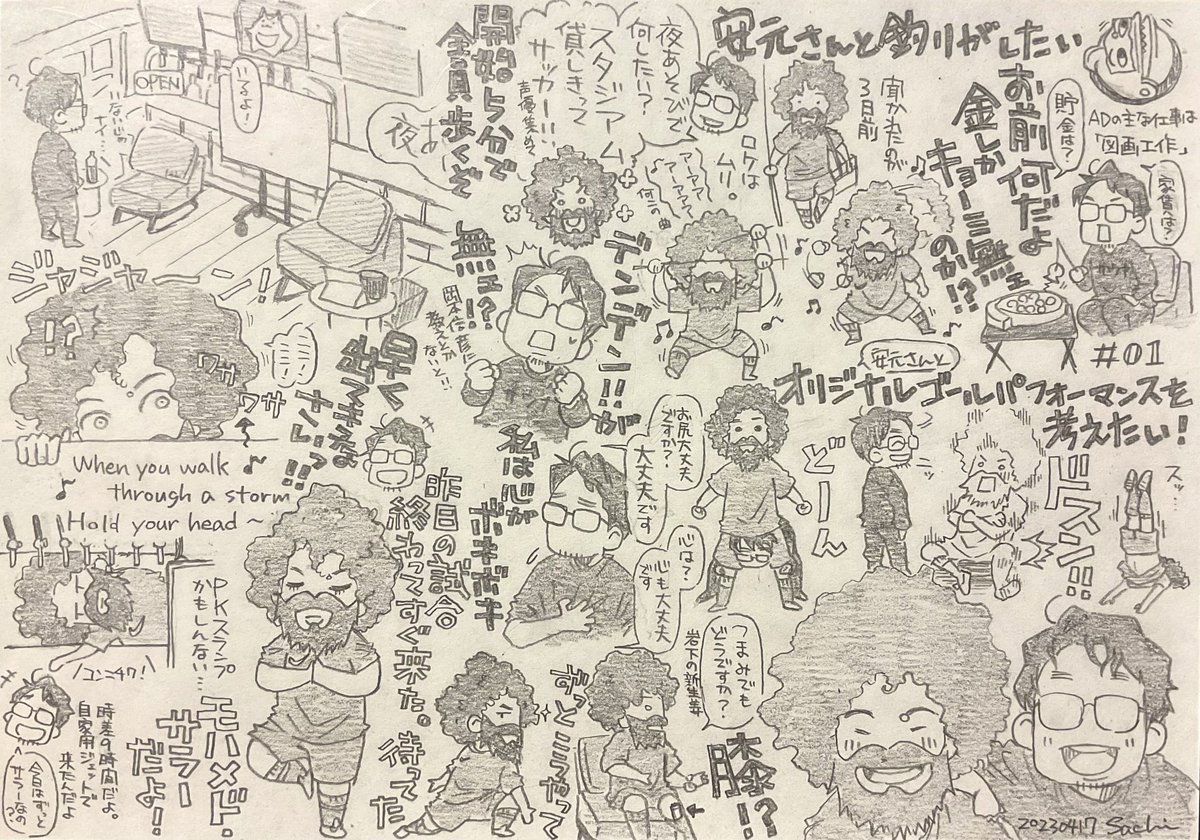 安元さんと釣りがしたい
ADの主な仕事は
「図画工作」
貯金は?
家賃は?
お前何だよ
金しか
キョーミ無ェ
のか!?
聞かれたのが
3日前
夜あそびで
何したい?
スタジアム
貸しきって
サッカー!!
声優集めて
ロケは
ムリ。
開始5分で
全員歩くぞ
アァァァ
アァァァァ
何この曲
夜あ
いるよー
OPEN
デンデン!!が
無ェ!?
岡本信彦に
教えとか
ないと!!
ジャジャーーン!
!?
ワサ
ワサ
早く
出てきな
さいっ!!
When you walk
through a storm
Hold your head ~
#01
安元さんと
オリジナルゴールパフォーマンスを
考えたい!
スッ…
ドスン!!
どーん
お尻大丈夫
ですか?
大丈夫です
心は?
心も大丈夫
です
私は心が
ボキボキ
昨日の試合
終わってすぐ来た。
待ってた
ずっとこうやって
膝!?
つまみでも
どうですか?
岩下の新生姜
PKスランプ
かもしんない…
コンニチワ!
モハメド・
サラー
だよ!
時差9時間だよ。
自家用ジェットで
来たんだよ
今日はずっと
サラーなの?
20230417 Sachi